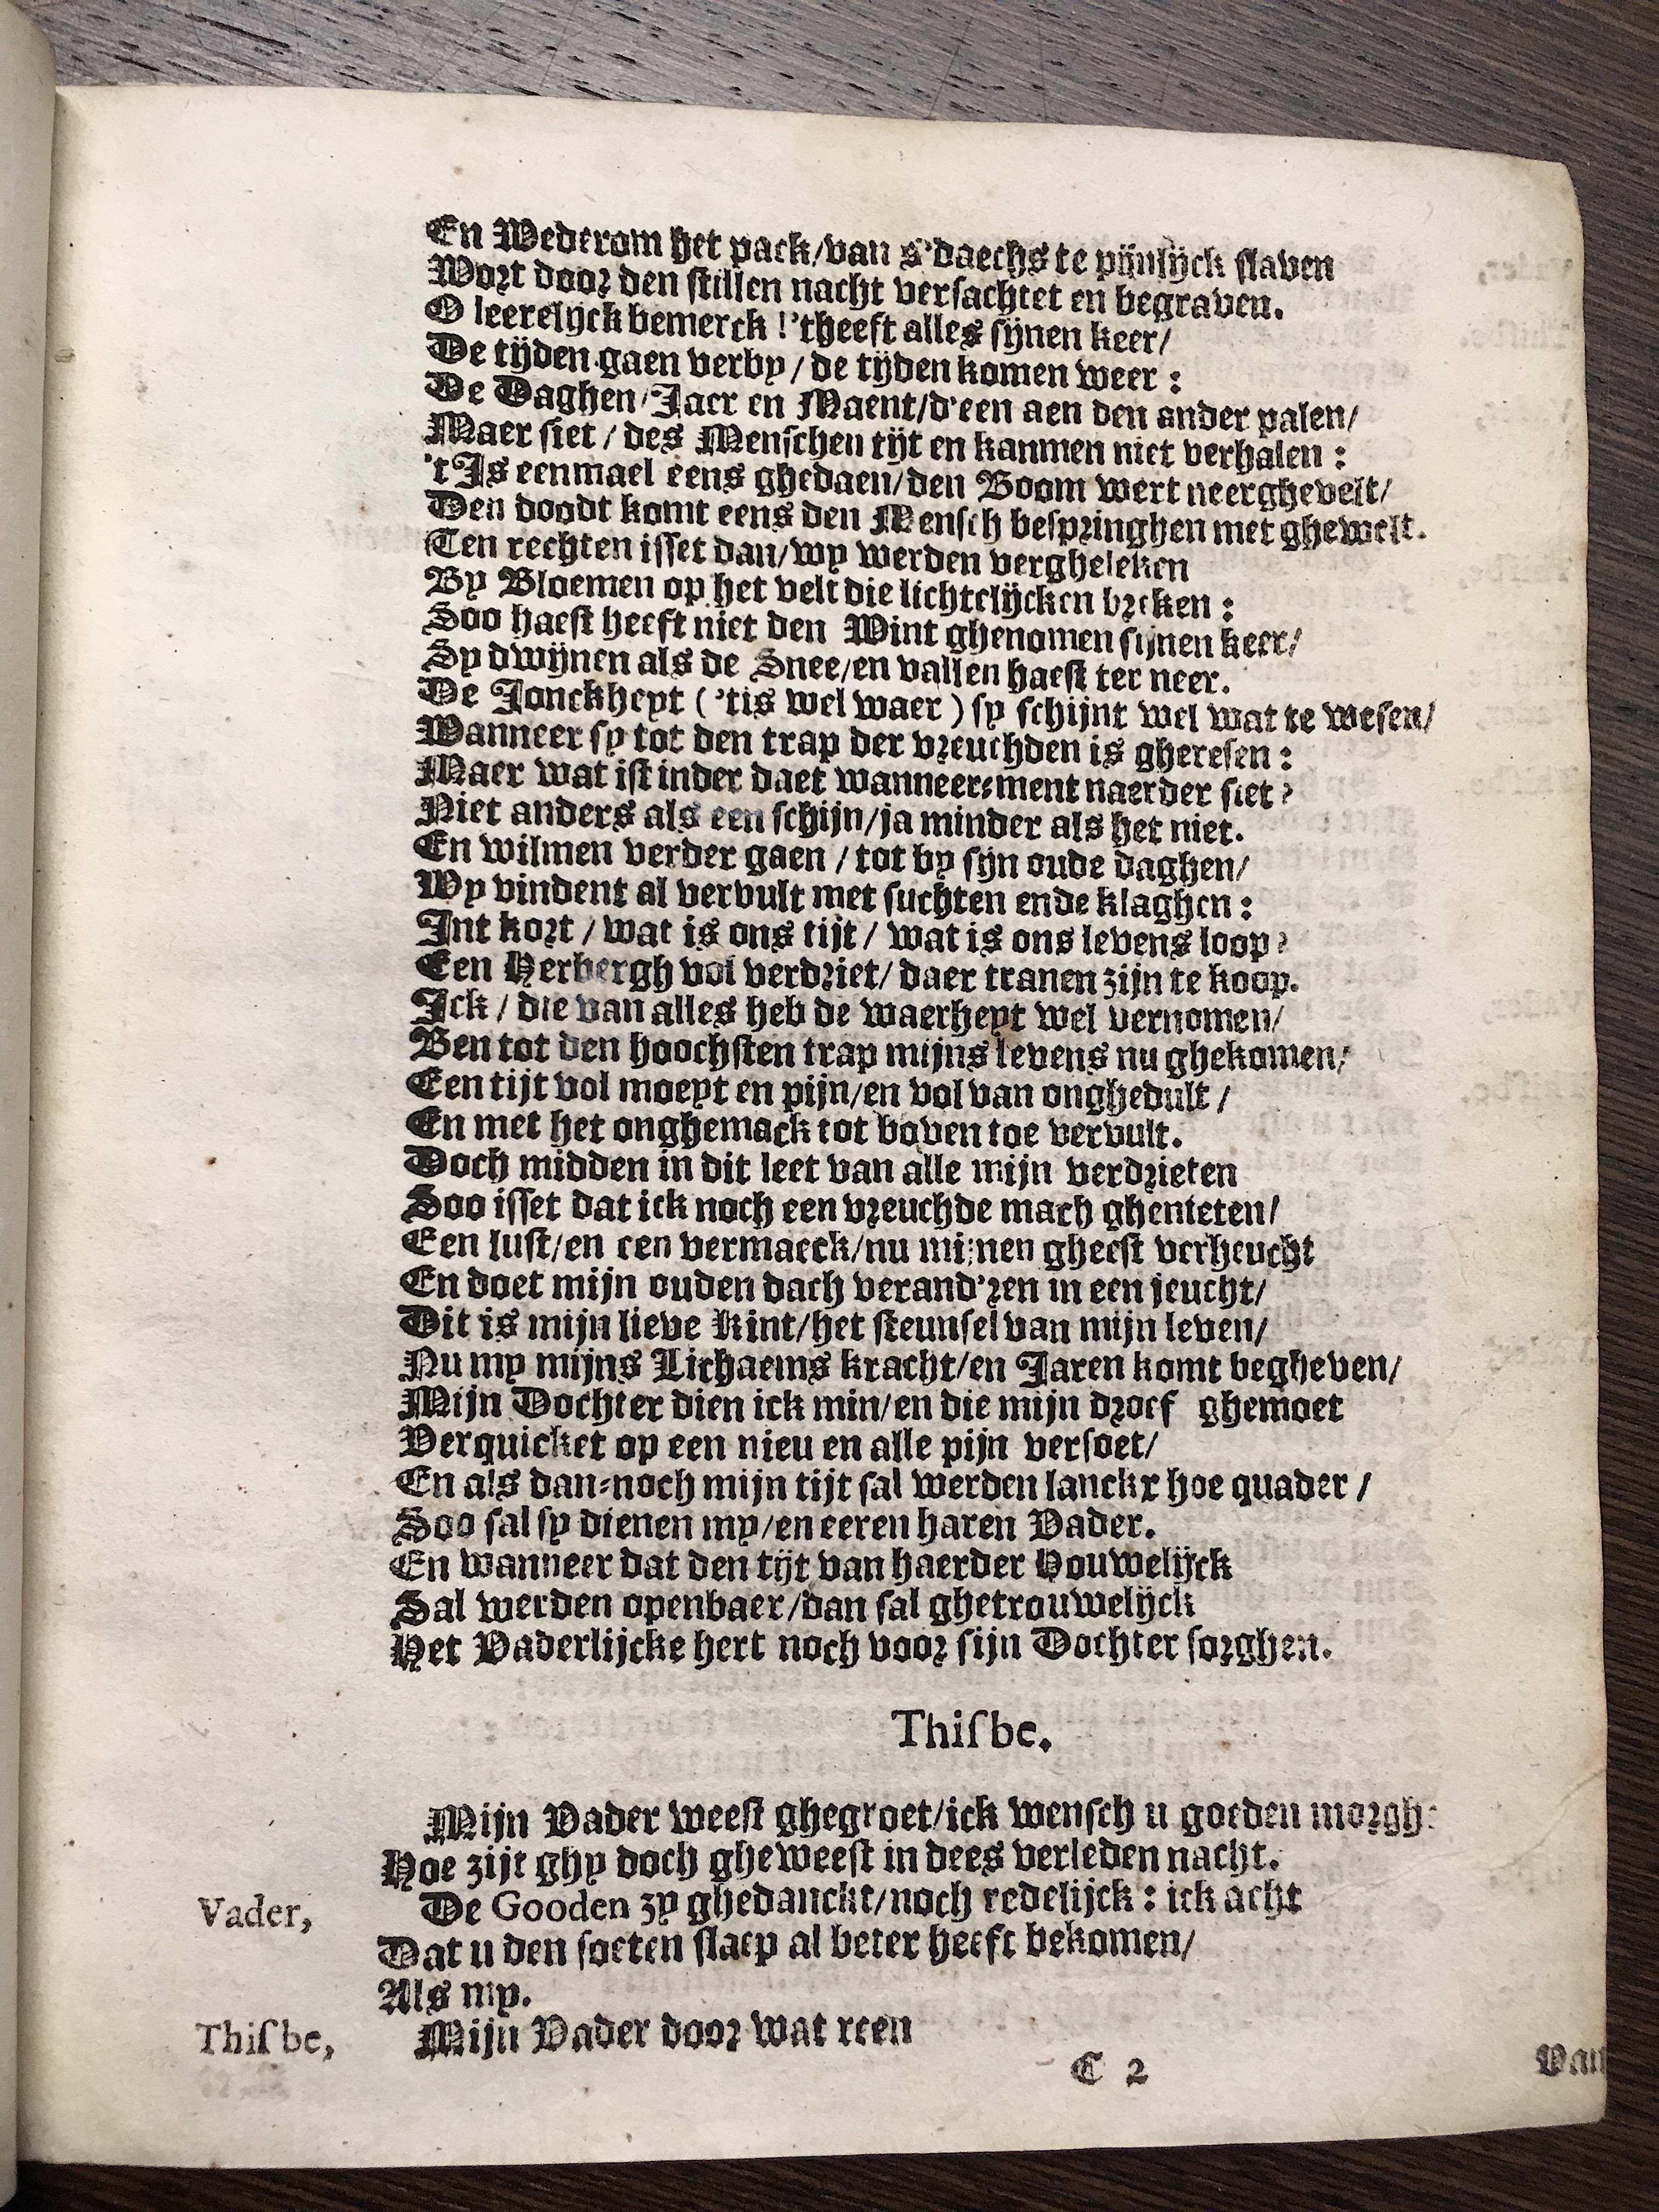 En Wederom het pack/van s'daechs te pijnlijck slaven
Wort door den stillen nacht versachtet en begraven.
O leerelijck bemerck !'theeft alles sijnen keer/
De tijden gaen verby / de tijden komen weer :
De Daghen/Jaer en Maent/d'een aen den ander palen/
Maer siet / des Menschen tijt en kanmen niet verhalen :
't Is eenmael eens ghedaen/den Boom wert neerghevelt/
Den doodt komt eens den Mensch bespringhen met ghewelt.
Ten rechten isset dan/wy werden vergheleken
By Bloemen op het velt die lichtelijcken breken :
Soo haest heeft niet den Wint ghenomen sijnen keer/
Sy dwijnen als de Snee/en vallen haest ter neer.
De Jonckheyt ('tis wel waer) sy schijnt wel wat te wesen/
Wanneer sy tot den trap der vreuchden is gheresen :
Maer wat ist inder daet wanneer-ment naerder siet?
Niet anders als een schijn/ja minder als het niet.
En wilmen verder gaen / tot by sijn oude daghen/
Wy vindent al vervult met suchten ende klaghen :
Int kort / wat is ons tijt / wat is ons levens loop?
Een Herbergh vol verdriet/ daer tranen zijn te koop.
Ick / die van alles heb de waerheyt wel vernomen/
Ben tot den hoochsten trap mijns levens nu ghekomen/
Een tijt vol moeyt en pijn/en vol van onghedult /
En met het onghemack tot boven toe vervult.
Doch midden in dit leet van alle mijn verdrieten
Soo isset dat ick noch een vreuchde mach ghenieten/
Een lust/en een vermaeck/nu mijnen gheest verheucht
En doet mijn ouden dach verand'ren in een jeucht/
Dit is mijn lieve Kint/het steunsel van mijn leven/
Nu my mijns Lichaems kracht/en Jaren komt begheven/
Mijn Dochter dien ick min/en die mijn droef ghemoet
Verquicket op een nieu en alle pijn versoet/
En als dan-noch mijn tijt sal werden lanckx hoe quader /
Soo sal sy dienen my/en eeren haren Vader.
En wanneer dat den tijt van haerder Houwelijck
Sal werden openbaer/dan sal ghetrouwelijck
Het Vaderlijcke hert noch voor sijn Dochter sorghen.
Thisbe.
Mijn Vader weest ghegroet/ick wensch u goeden morgh:
Hoe zijt ghy doch gheweest in dees verleden nacht.
Vader, De Gooden zy ghedanckt/noch redelijck : ick acht
Dat u den soeten slaep al beter heeft bekomen/
Als my.
Thisbe, Mijn Vader door wat reen
C 2 Van